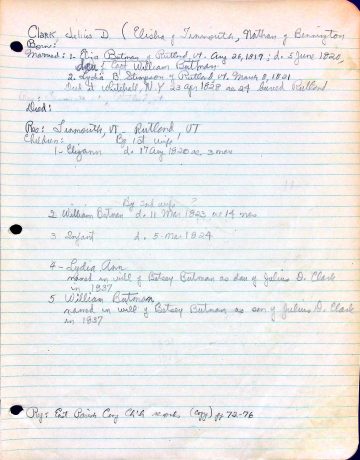 Clark, Julius D. (Elisha of Tinmouth, Nathan of Bennington
Born:
Married: 1. Eliza Butman of Rutland, Vt. Aug 26, 1819; d. 5 June 1820,
dau of Capt William Butman
2. Lydia B. Stimpson of Rutland, Vt. March 8, 1821
Died at Mitchell, N.Y 23 apr 1828 ae 24 buried Rutland
Died:
Res: Tinmouth, VT - Rutland, VT
Children: By 1st wife
1 - Elizann d. 17 Aug 1820 ae 3 mos
By 2nd wife
2 William Butman d. 11 Mar 1823 ae 14 mos
3 Infant d. 5 Mar 1824
4 - Lydia Ann
named in will of Betsey Butman as dau of Julius D. Clark
in 1837
5 William Butman
named in will of Betsey Butman as son of Julius D. Clark
in 1837
Ref: East Parish Cong Ch'h records (copy) pp 72-76